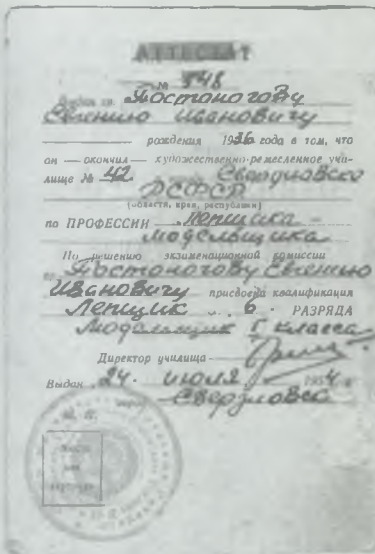 АТТЕСТАТ
№ 548
Выдан тв. Постоногову
Евгению Ивановичу
рождения 1936 года в том, что
он — окончил — художественно-ремесленное учи-
лище № 42. Свердловска
РСФСР
(области, края, республики)
по ПРОФЕССИИ Лепщика -
модельщика
По решению экзаменационной комиссии
Постоногову Евгению
Ивановичу присвоена квалификация
Лепщик 6 РАЗРЯДА
Модельщик I класса
Директор училища
Выдан 24. июля 1954 г.
Свердловск
М. П.
Место
для